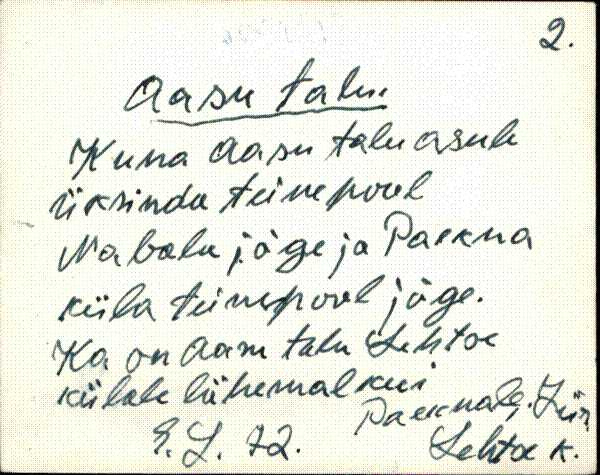 2.
Aasu talu.
Kuna Aasu talu asub
üksinda teinepool
Nabala jõge ja Paekna
küla teinepool jõge.
Ka on Aasu talu Lehtse
külale lühemal kui
Paeknale. Jür.
E. L. 72. Lehtse k.